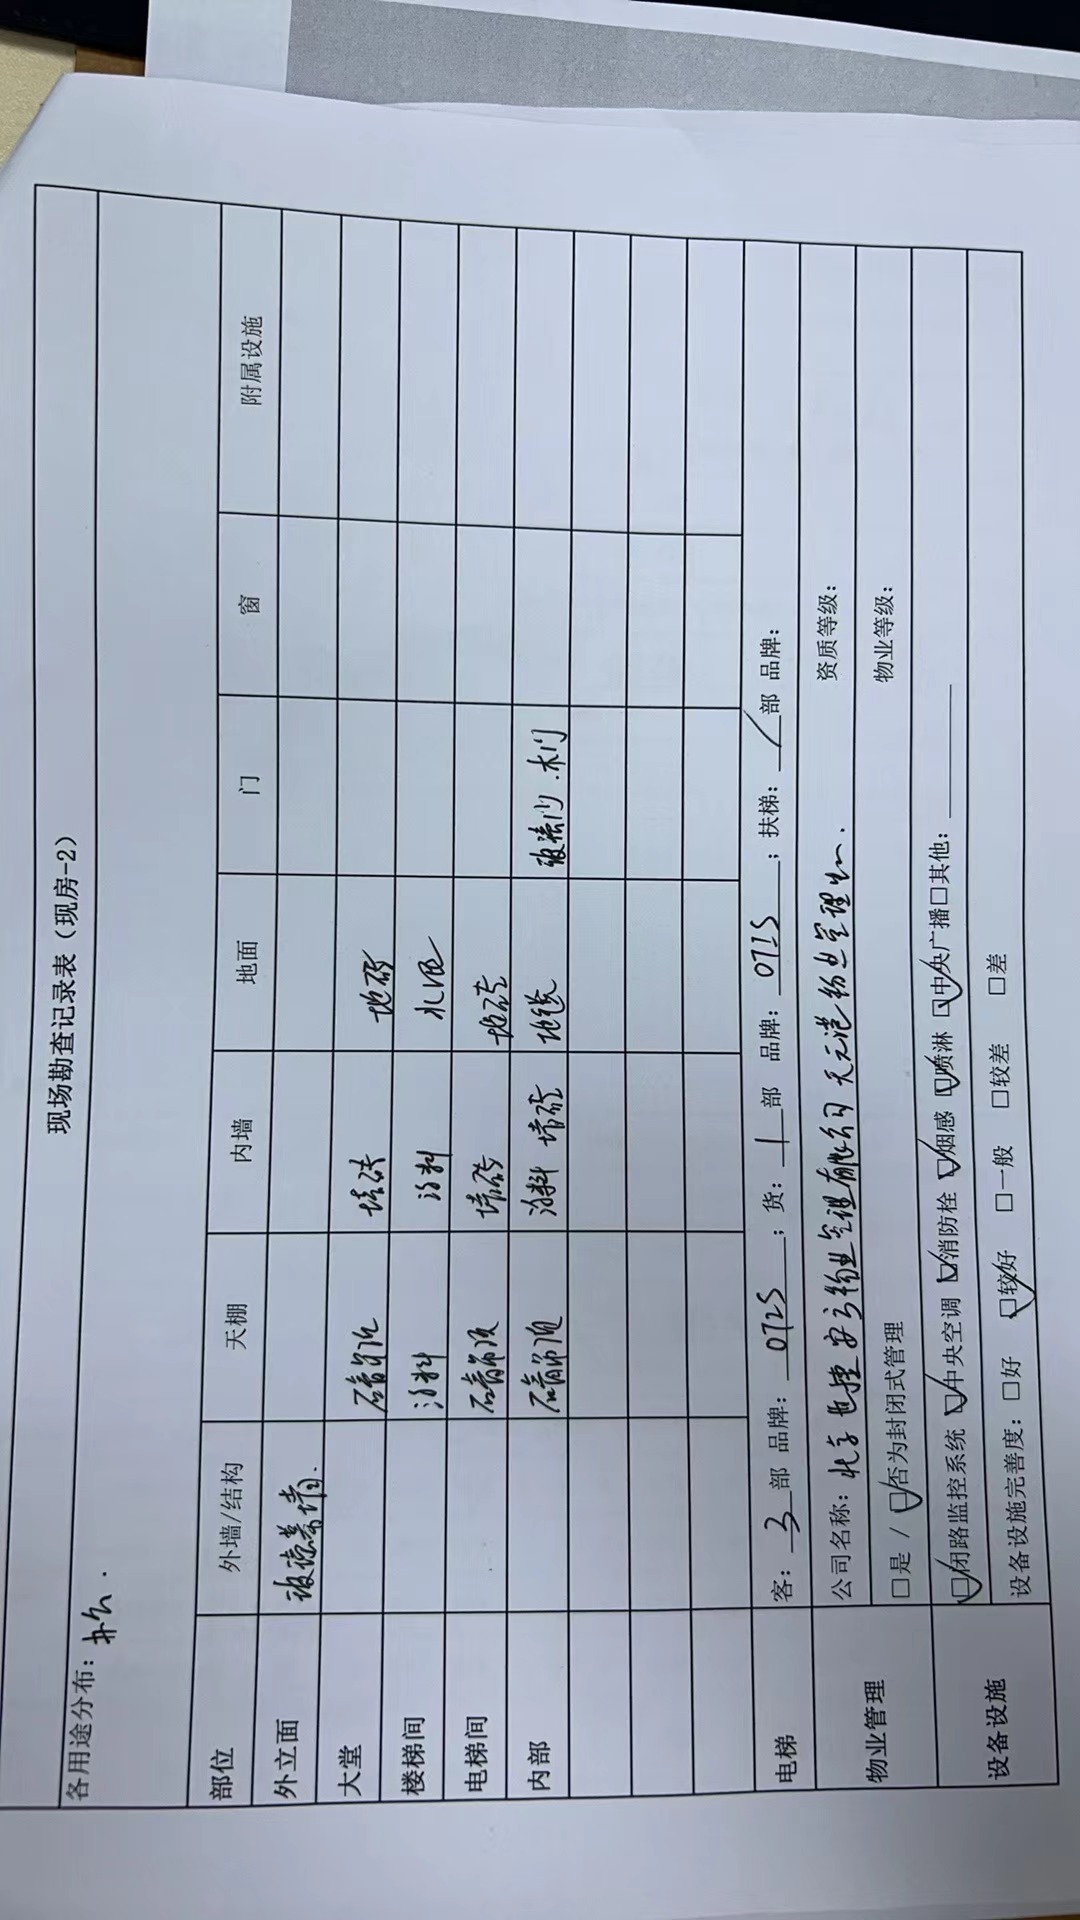 现场勘查记录表（现房-2）
各用途分布：办公.
部位 外墙/结构 天棚 内墙 地面 门 窗 附属设施
外立面 玻璃幕墙.
大堂 石膏吊顶 墙砖 地砖
楼梯间 涂料 涂料 水泥
电梯间 石膏吊顶 墙砖 地砖
内部 石膏吊顶 涂料 墙砖 地毯 玻璃门.木门
电梯 客：3部 品牌：OTIS；货：1部 品牌：OTIS；扶梯：/部 品牌：
物业管理 公司名称：北京 物业管理有限公司 天元港物业管理 资质等级：
□是/☑否为封闭式管理 物业等级：
设备设施 ☑闭路监控系统☑中央空调☑消防栓☑烟感☑喷淋☑中央广播□其他：
设备设施完善度：□好 ☑较好 □一般 □较差 □差